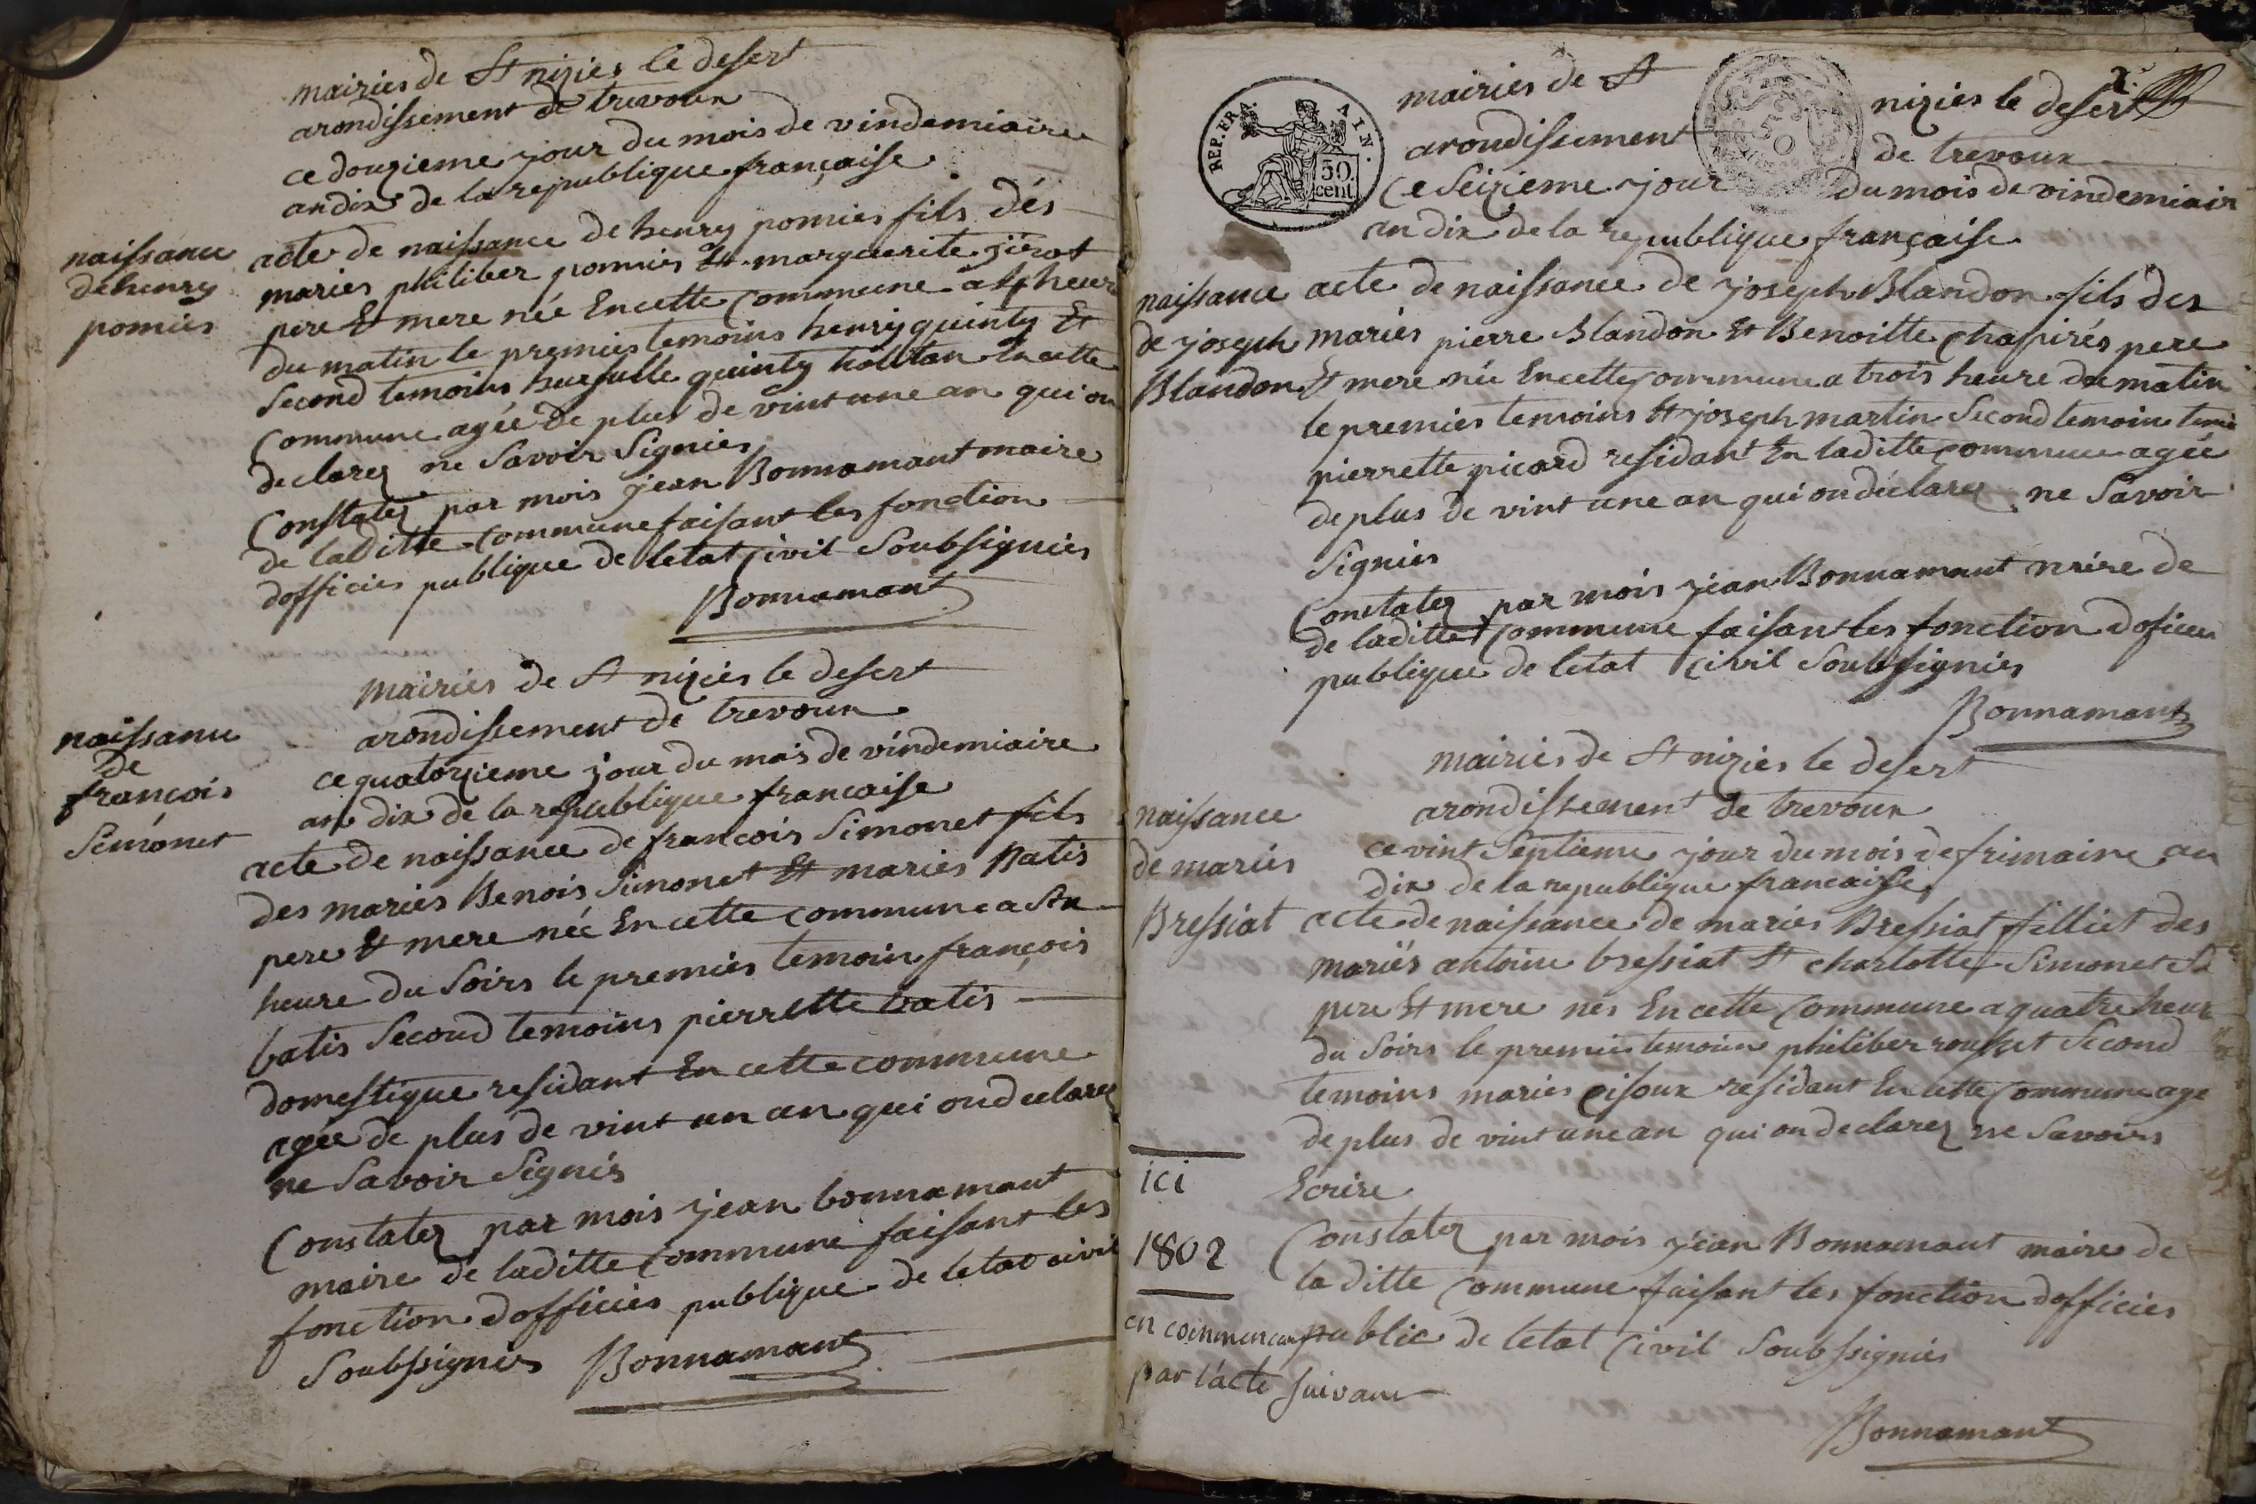 mairies de St nizies le desert
arondissement de trevoux
ce douzieme jour du mois de vindemiaire
an dix de la republique française
naissance
de henry
pomies
acte de naissance de henry pomies fils dés
maries philiber pomies Et marguerite girot
pere Et mere née En cette Commune a 4 heure
du matin le premies temoins henry quinty Et
Second temoins quinty En cette
Commune agée de plus de vint une an qui on
declarez ne Savoir Signies
Constatez par mois jean Bonnamant maire
de laditte Commune faisant les fonction
dofficies publique de letat Civil Soubsignies
Bonnamant
mairies de St nizies le desert
arondissement de trevoux
naissance
de
françois
Simonet
ce quatorzieme jour du mois de vindemiaire
an dix de la republique francaise
acte de naissance de francois Simonet fils
des maries Benois Simonet Et maries Batis
pere Et mere née En cette commune a six
heure du Soirs le premies temoin françois
batis Second temoins pierrette batis
domestique residant En cette commune
agée de plus de vint un an qui on declarez
ne Savoir Signés
Constatez par mois jean bonnamant
maire de laditte Commune faisant les
fonction dofficies publique de letat civil
Soubssignies Bonnamant
REP. FRA. AIN.
50. cent
mairies de St nizies le desert
arondissement de trevoux
Ce Seizieme jour du mois de vindemiair
an dix de la republique française
naissance
de joseph
Blandon
acte de naissance de joseph Blandon fils des
mariés pierre Blandon Et Benoitte Chapirés pere
Et mere née En cette Commune a trois heure du matin
le premies temoins Et joseph martin Second temoin
pierrette picard residant En laditte Commune agée
de plus de vint une an qui on déclarez ne Savoir
Signies
Constatez par mois jean Bonnamant maire de
de laditte Commune faisant les fonction doficies
publique de letat Civil Soubssignies
Bonnamant
mairies de St nizies le desert
arondissement de trevoux
naissance
de mariés
Bressiat
ce vint Septieme jour du mois de frimaire an
dix de la republique francaisse
acte de naissance de maries Bressiat filliet des
mariés antoine bressiat Et charlotte Simonet
pere Et mere nés En cette Commune a quatre heur
du Soirs le premie temoins philiber rousset Second
temoins maries Cisoux residant En cette Commune age
de plus de vint une an qui on declarez ne Savoirs
Ecrire
Constatez par mois jean Bonnamant maire de
la ditte Commune faisant les fonction dofficies
public de letat Civil Soubssignies
ici
1802
en commencant
par l'acte suivant
Bonnamant